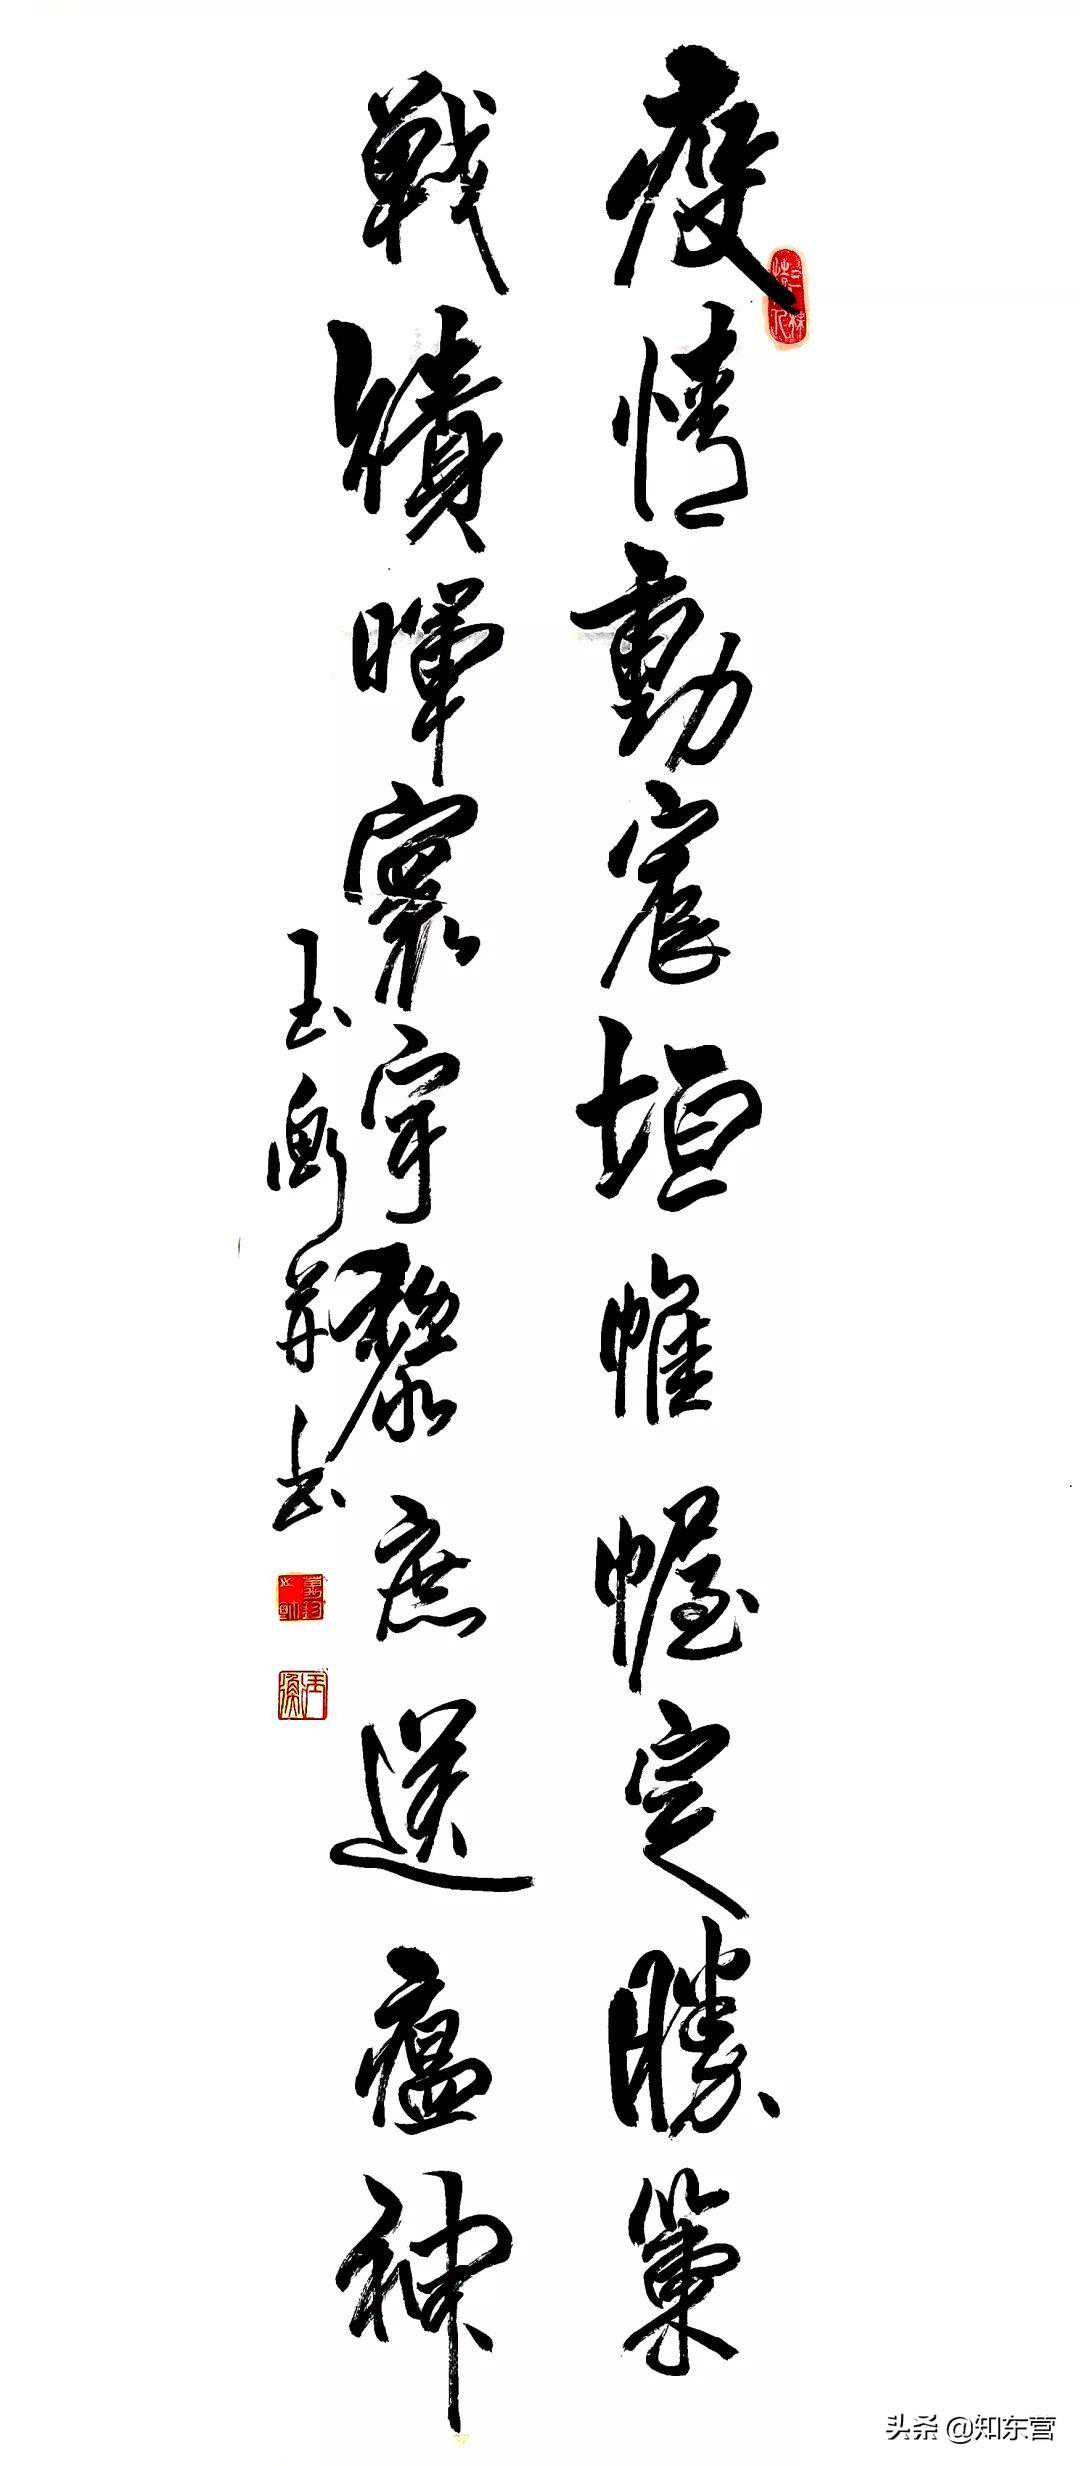 疫情動宸垣帷幄定勝策
戰績暉寰宇黎庶送瘟神
玉衡并书
头条 @知东营